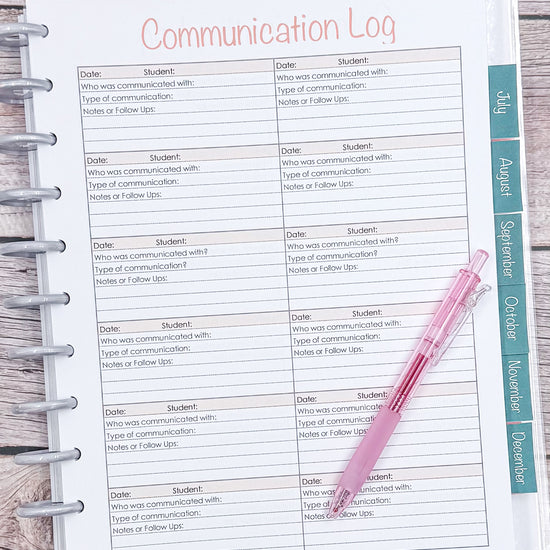 Communication Log
Date: Student:
Who was communicated with:
Type of communication:
Notes or Follow Ups:
Date: Student:
Who was communicated with:
Type of communication:
Notes or Follow Ups:
Date: Student:
Who was communicated with:
Type of communication:
Notes or Follow Ups:
Date: Student:
Who was communicated with:
Type of communication:
Notes or Follow Ups:
Date: Student:
Who was communicated with?
Type of communication?
Notes or Follow Ups:
Date: Student:
Who was communicated with?
Type of communication?
Notes or Follow Ups:
Date: Student:
Who was communicated with:
Type of communication:
Notes or Follow Ups:
Date: Student:
Who was communicated with:
Type of communication:
Notes or Follow Ups:
Date: Student:
Who was communicated with:
Type of communication:
Notes or Follow Ups:
Date: Student:
Who was communicated with:
Type of communication:
Notes or Follow Ups:
Date: Student:
Who was communicated with:
Type of communication:
Notes or Follow Ups:
Date: Student:
Who was communicated with:
Type of communication:
Notes or Follow Ups:
July
August
September
October
November
December